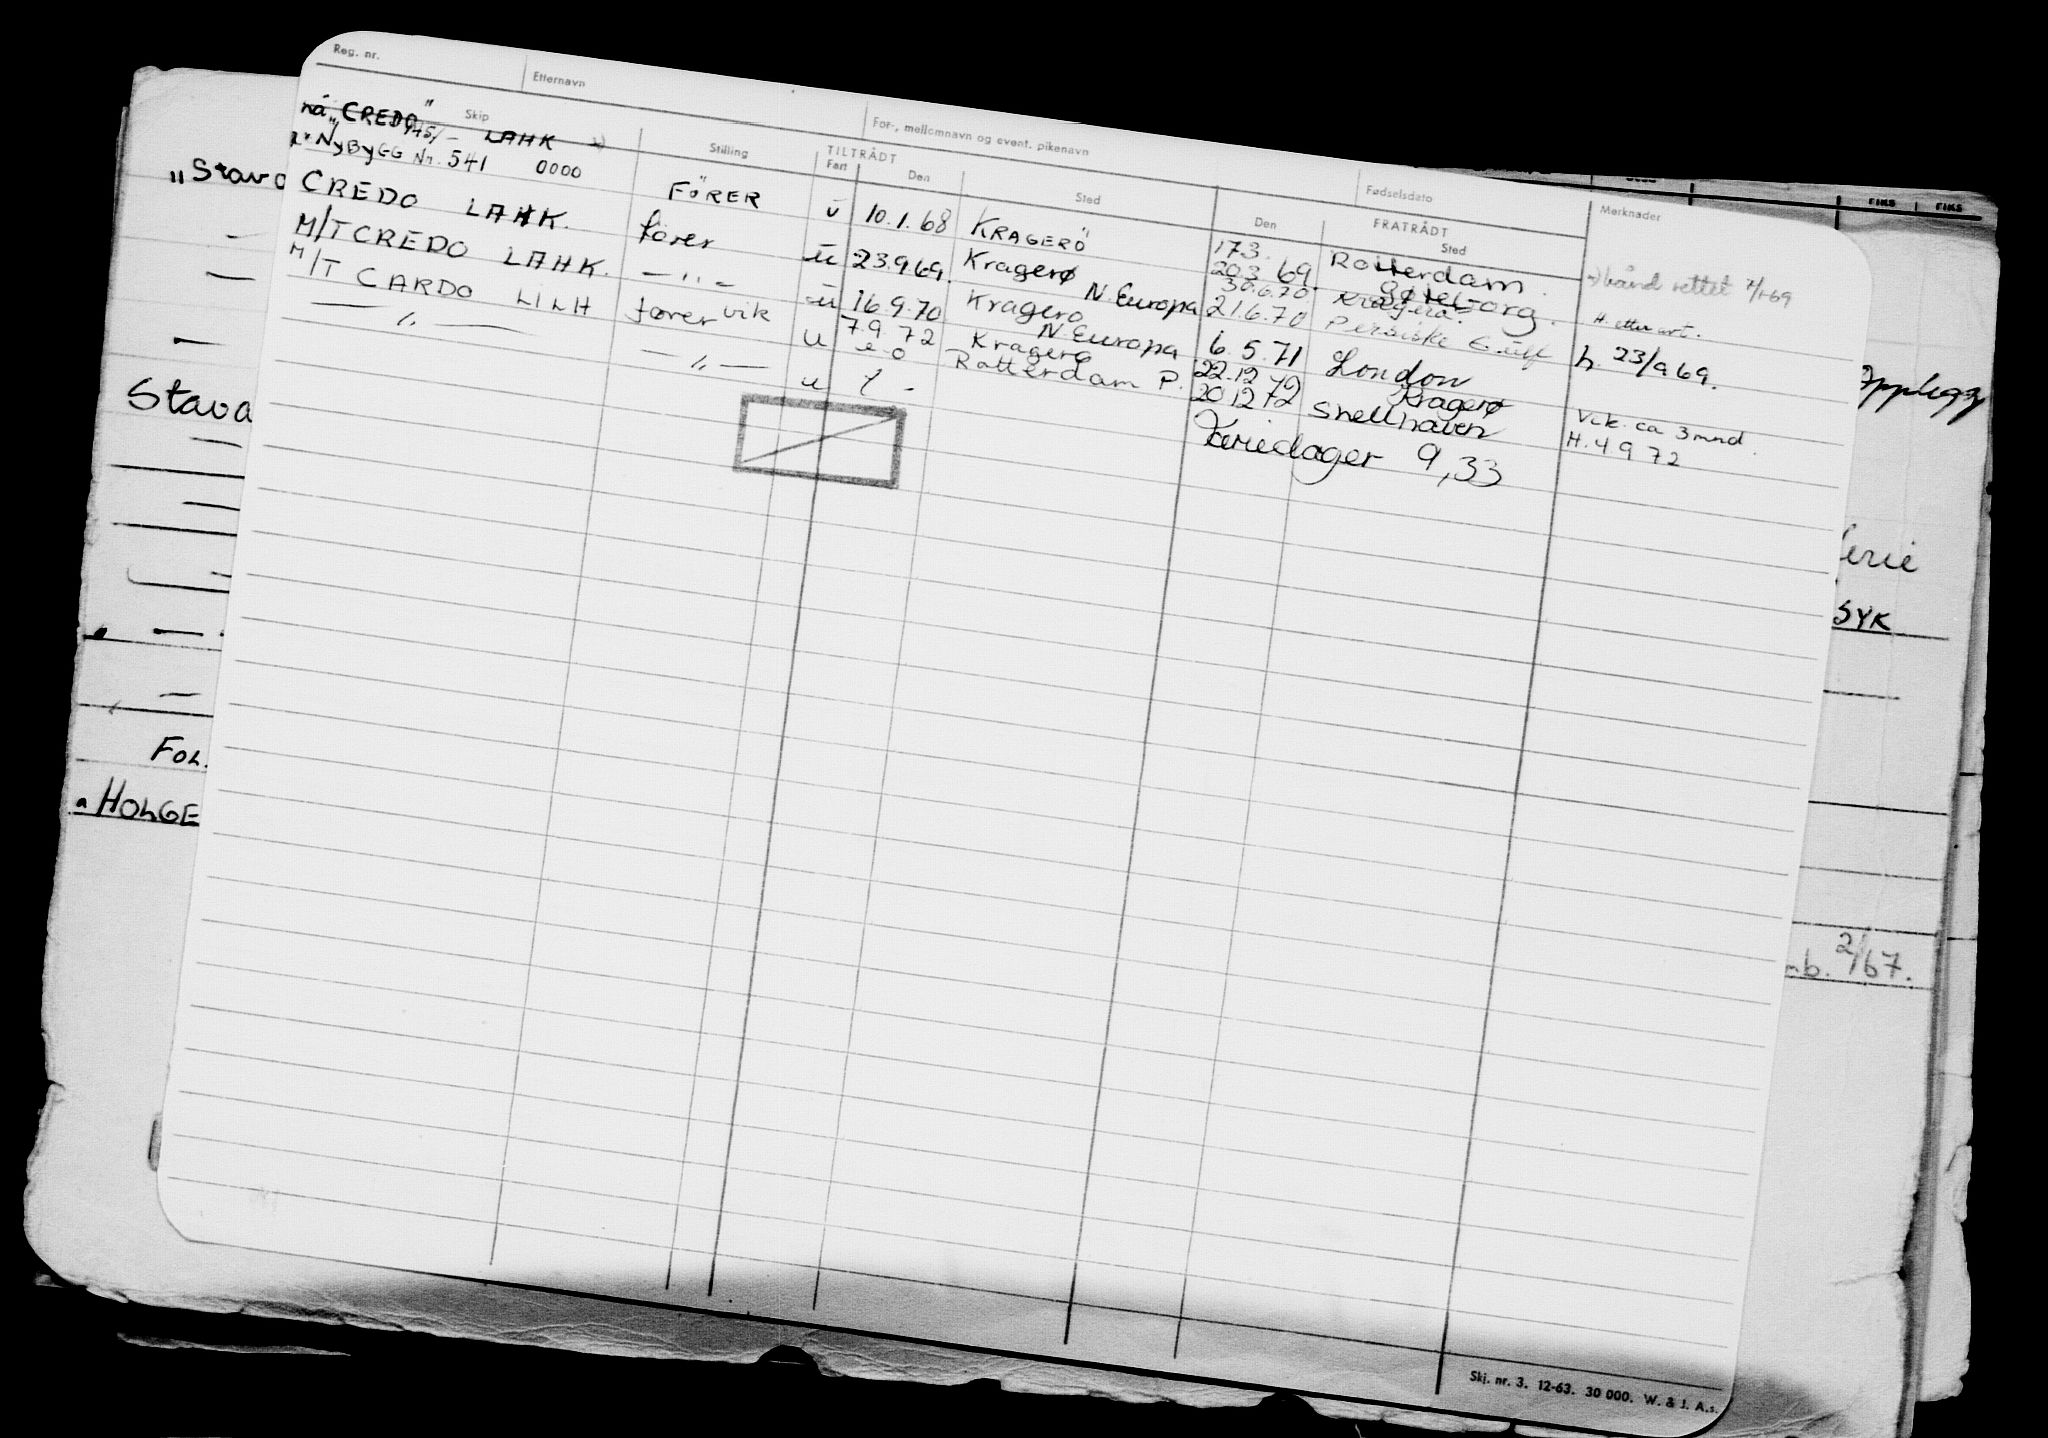 Reg. nr. Etternavn For-, mellomnavn og event. pikenavn Fødselsdato Merknader
Skip Stilling TILTRÅDT Fart Den Sted FRATRÅDT Den Sted
nå "CREDO" LAHK
NYBYGG Nr. 541 0000 FÖRER u 10.1.68 KRAGERÖ 17.3. Rotterdam bånd rettet 7/1-69
CREDO LAHK. fører u 23.9.69. Kragerø 20.3.69. Gøteborg. H. etter avt.
30.6.70 Kragerø.
M/T CREDO LAHK. — " — u 16.9.70 Kragerø N. Europa 21.6.70 Persiske Gulf h. 23/9 69.
M/T CARDO LILH fører vik u 7.9.72 Kragerø N. Europa 6.5.71 London
— " — — " — u Rotterdam P. 22.12.72 Kragerø Vik. ca 3 mnd.
20.12.72 Shellhaven H. 4 9 72
Feriedager 9,33
"Stava
Stava
FOL.
HOLGE
Opplegg
ferie
SYK
mb. 2/67.
FIKS FIKS
Skj. nr. 3. 12-63. 30 000. W. & J. A.s.